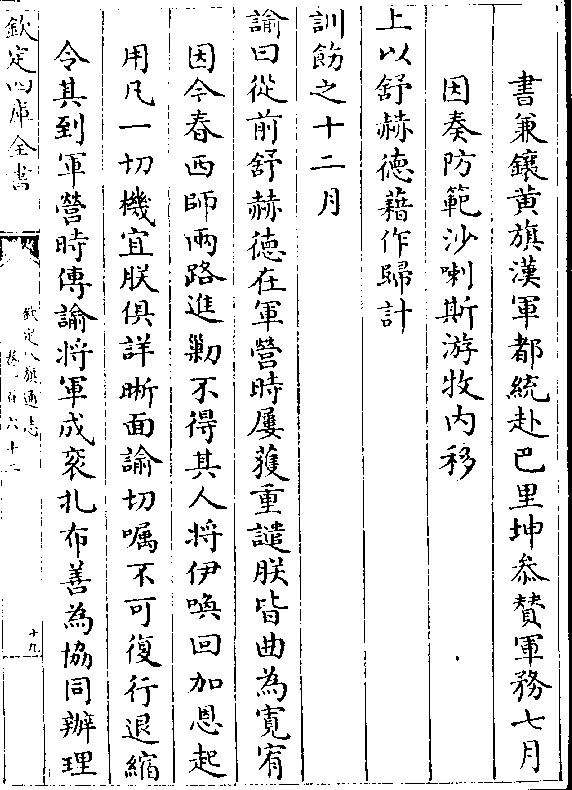 書兼鑲黄旗漢軍都統赴巴里坤叅賛軍務七月
因奏防範沙喇斯游牧内移
上以舒赫德藉作歸計
訓飭之十二月
諭曰從前舒赫德在軍營時屢獲重譴朕皆曲為寛宥
因今春西師兩路進勦不得其人将伊喚回加恩起
用凡一切機宜朕俱詳晰面諭切嘱不可復行退縮
令其到軍營時傳諭将軍成衮扎布善為協同辦理
欽定四庫全書
欽定八旗通志
卷一百六十二
十九